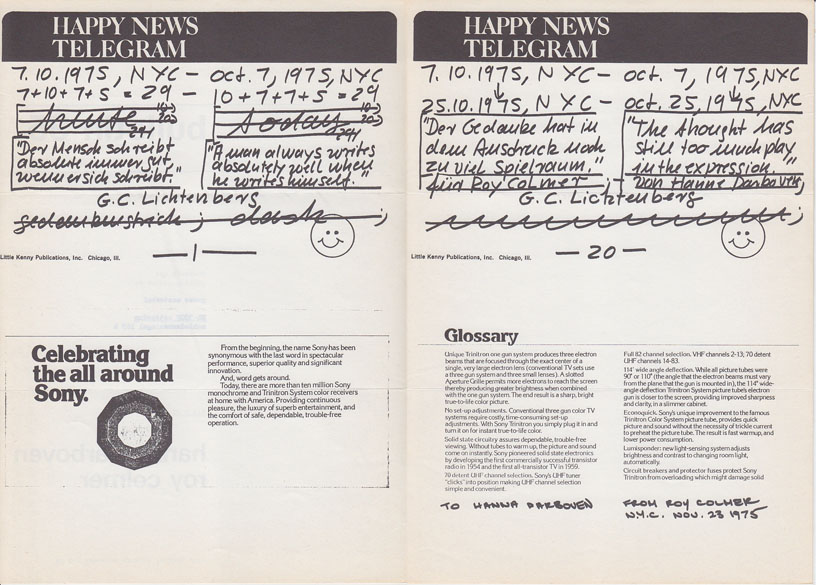 HAPPY NEWS
TELEGRAM
7.10.1975, NYC — oct. 7, 1975, NYC
7+10+7+5 = 29 — 10+7+7+5 = 29
heute
today
"Der Mensch schreibt
absolute immer gut,
wenn er sich schreibt."
"A man always writes
absolutely well when
he writes himself."
G.C. Lichtenberg,
gedankenstrich; dash ;
Little Kenny Publications, Inc. Chicago, Ill.
— 1 —
Celebrating
the all around
Sony.
From the beginning, the name Sony has been
synonymous with the last word in spectacular
performance, superior quality and significant
innovation.
And, word gets around.
Today, there are more than ten million Sony
monochrome and Trinitron System color receivers
at home with America. Providing continuous
pleasure, the luxury of superb entertainment, and
the comfort of safe, dependable, trouble-free
operation.
HAPPY NEWS
TELEGRAM
7.10.1975, NYC — oct. 7, 1975, NYC
25.10.1975, NYC — oct. 25, 1975, NYC
"Der Gedanke hat in
dem Ausdruck noch
zu viel Spielraum."
für Roy Colmer ;
"The thought has
still too much play
in the expression."
von Hanne Darboven;
G.C. Lichtenberg
Little Kenny Publications, Inc. Chicago, Ill.
— 20 —
Glossary
Unique Trinitron one gun system produces three electron
beams that are focused through the exact center of a
single, very large electron lens (conventional TV sets use
a three gun system and three small lenses). A slotted
Aperture Grille permits more electrons to reach the screen
thereby producing greater brightness when combined
with the one gun system. The end result is a sharp, bright
true-to-life color picture.
No set-up adjustments. Conventional three gun color TV
systems require costly, time-consuming set-up
adjustments. With Sony Trinitron you simply plug it in and
turn it on for instant true-to-life color.
Solid state circuitry assures dependable, trouble-free
viewing. Without tubes to warm up, the picture and sound
come on instantly. Sony pioneered solid state electronics
by developing the first commercially successful transistor
radio in 1954 and the first all-transistor TV in 1959.
70 detent UHF channel selection. Sony's UHF tuner
"clicks" into position making UHF channel selection
simple and convenient.
Full 82 channel selection. VHF channels 2-13; 70 detent
UHF channels 14-83.
114° wide angle deflection. While all picture tubes were
90° or 110° (the angle that the electron beams must vary
from the plane that the gun is mounted in), the 114° wide-
angle deflection Trinitron System picture tube's electron
gun is closer to the screen, providing improved sharpness
and clarity, in a slimmer cabinet.
Econoquick. Sony's unique improvement to the famous
Trinitron Color System picture tube, provides quick
picture and sound without the necessity of trickle current
to preheat the picture tube. The result is fast warmup, and
lower power consumption.
Lumisponder: new light-sensing system adjusts
brightness and contrast to changing room light,
automatically.
Circuit breakers and protector fuses protect Sony
Trinitron from overloading which might damage solid
TO HANNA DARBOVEN
FROM ROY COLMER
N.Y.C. NOV. 23 1975